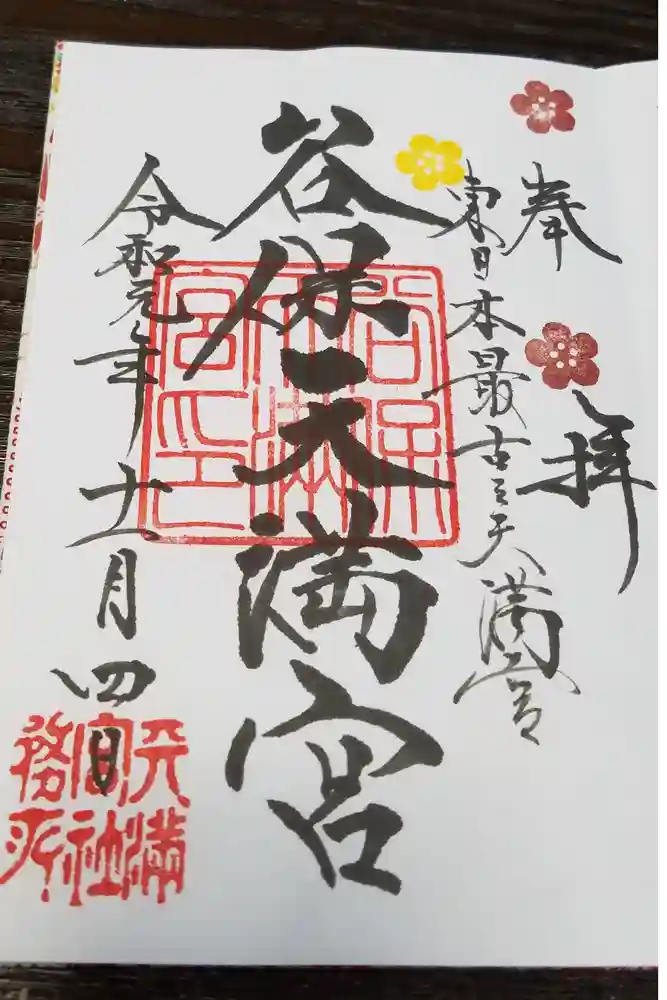 奉拝
東日本最古之天満宮
谷保天満宮
令和元年十一月四日
谷保
天満
宮印
天満
宮社
務所